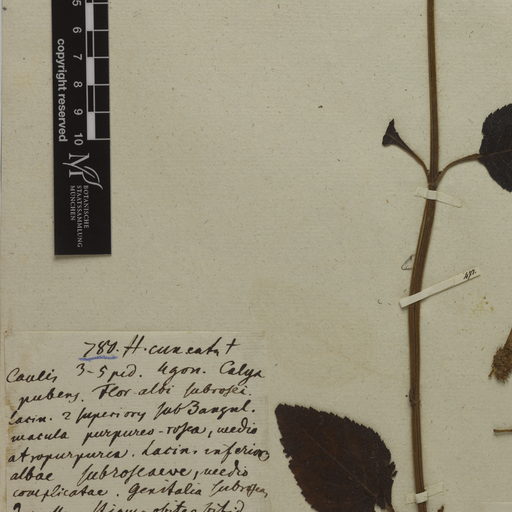 5
6
7
8
9
10
copyright reserved
BOTANISCHE
STAATSSAMMLUNG
MÜNCHEN
780. H. cuneata †
Caulis 3-5 ped. 4gon. Calyx
pubens. Flor albi subrosei.
Lacin. 2 superiors sub3angul.
macula purpureo-rosea, medio
atropurpurea. Lacin. inferior
albae subroseaeve, medio
complicatae. Genitalia subrosea,